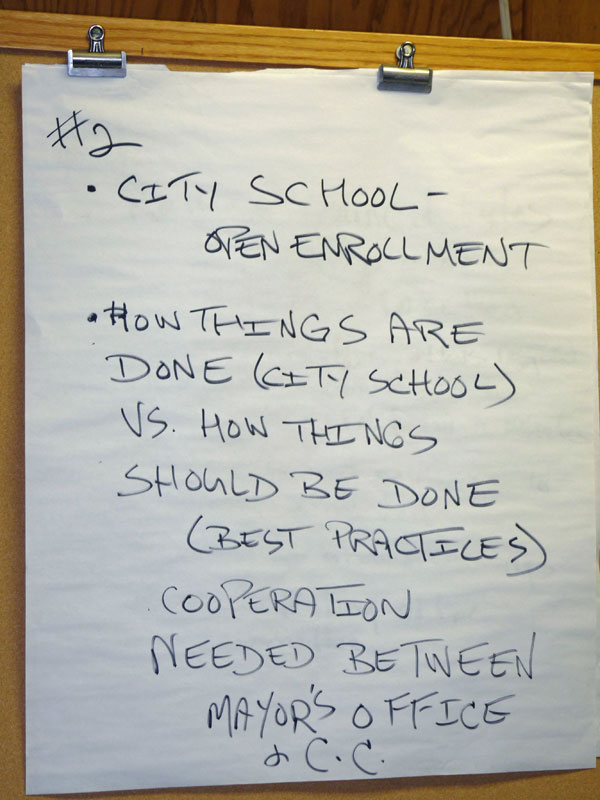 #2
• CITY SCHOOL -
OPEN ENROLLMENT
• HOW THINGS ARE
DONE (CITY SCHOOL)
VS. HOW THINGS
SHOULD BE DONE
(BEST PRACTICES)
COOPERATION
NEEDED BETWEEN
MAYOR'S OFFICE
& C.C.